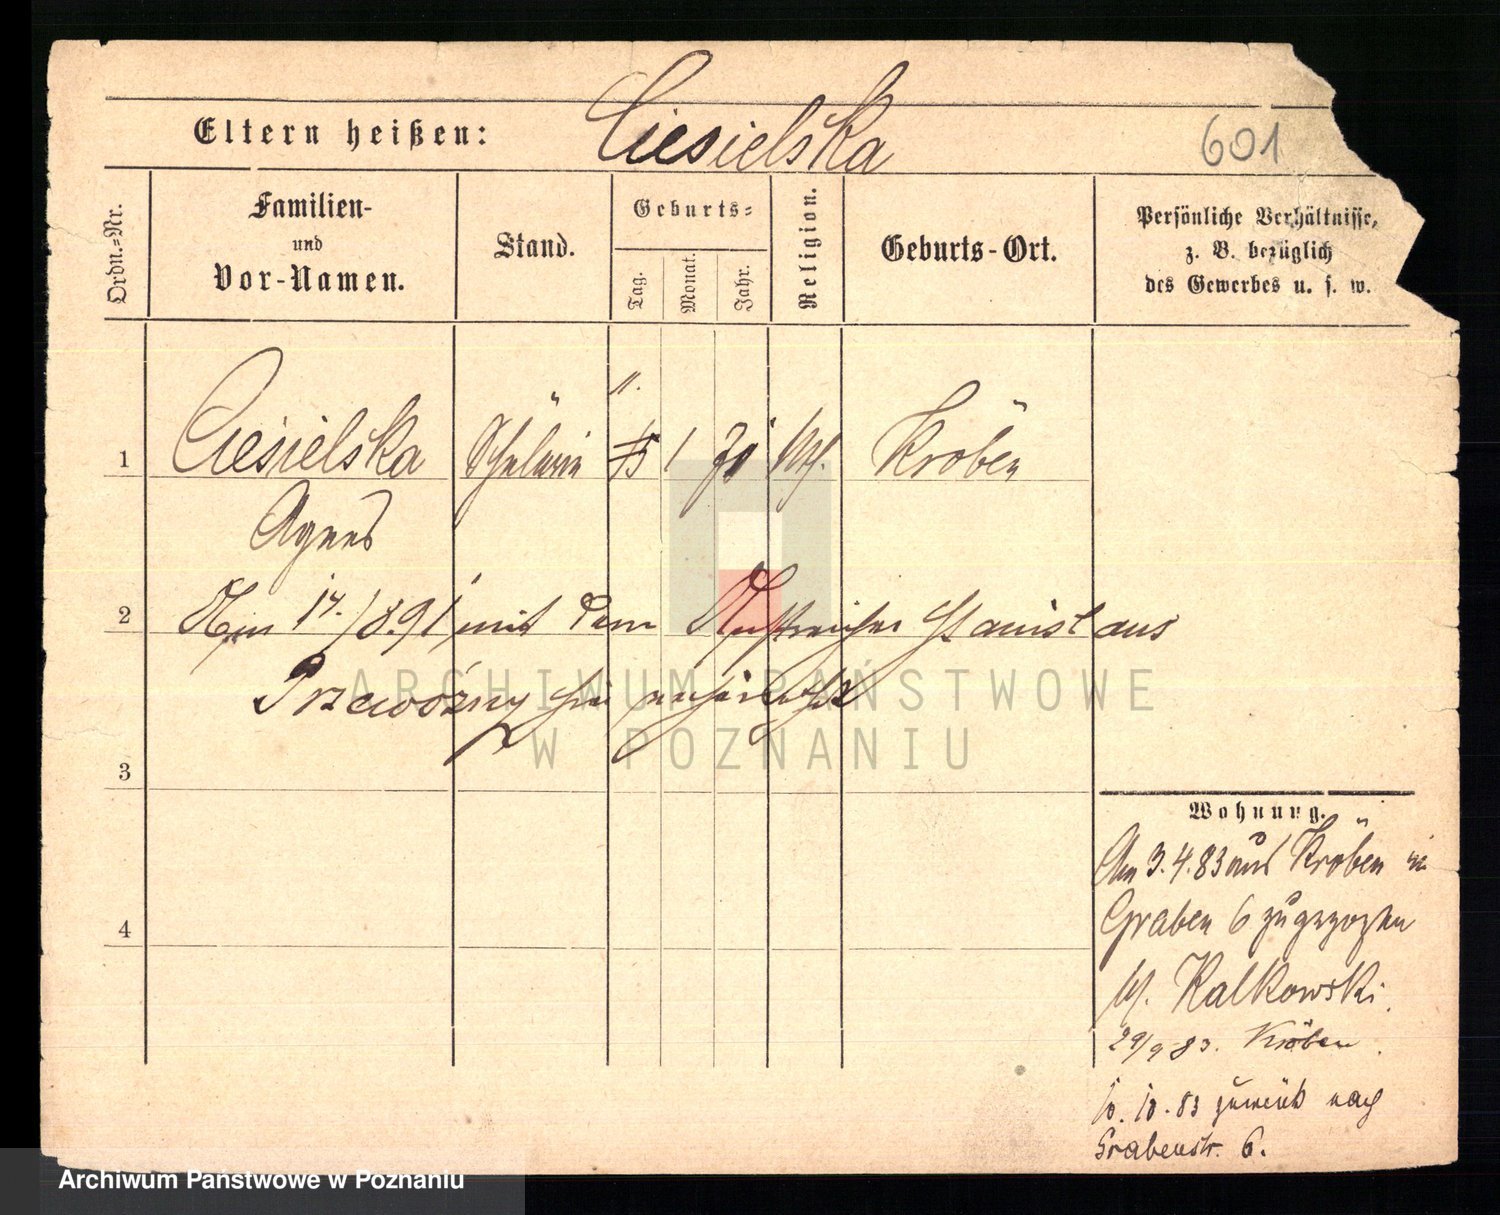 Eltern heißen: Ciesielska
601
Ordn.=Nr.
Familien-
und
Vor-Namen.
Stand.
Geburts=
Tag.
Monat.
Jahr.
Religion.
Geburts-Ort.
Persönliche Verhältnisse,
z. B. bezüglich
des Gewerbes u. s. w.
11.
1 Ciesielska Schülerin 1 70 kath. Kröben
Agnes
2 Am 14./8.91 mit dem Anstreicher Stanislaus
Przewoźny hier verheirathet
ARCHIWUM PAŃSTWOWE
W POZNANIU
3
4
Wohnung.
Am 3.4.83 aus Kröben n.
Graben 6 zugezogen
bei Kalkowski.
29/9 83. Kröben.
10. 10. 83 zurück nach
Grabenstr. 6.
Archiwum Państwowe w Poznaniu